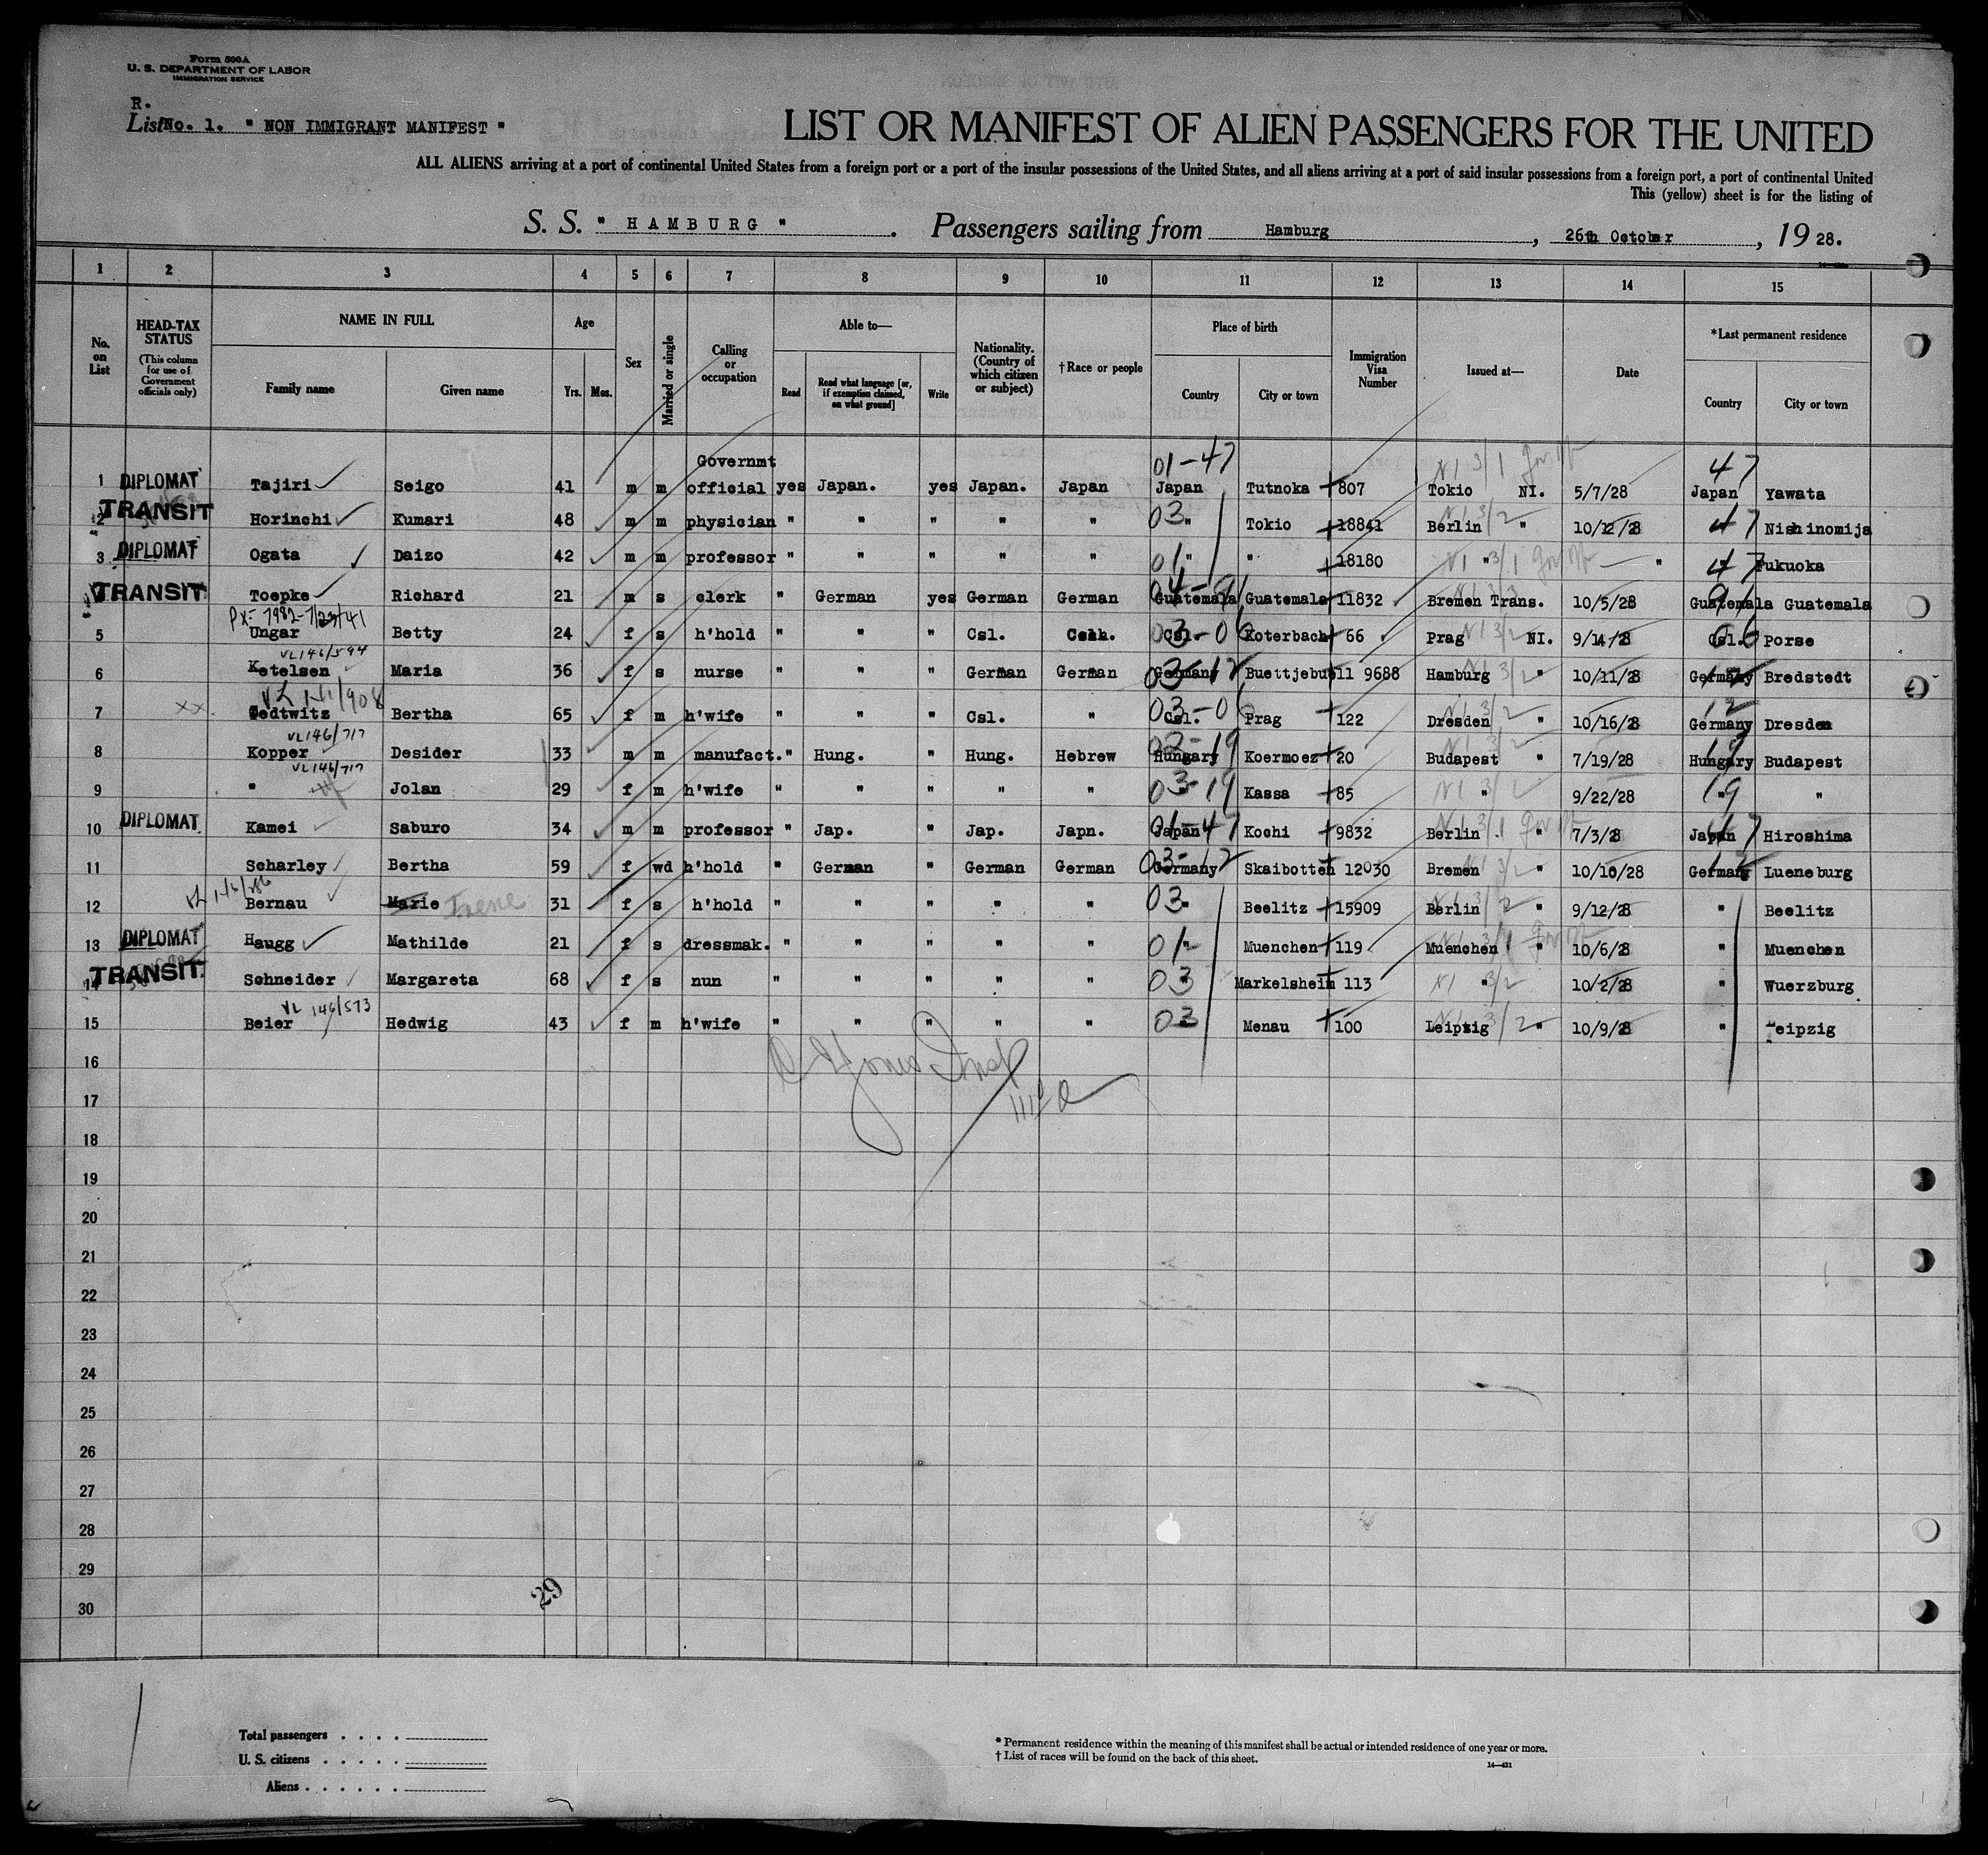 Form 500A
U. S. DEPARTMENT OF LABOR
IMMIGRATION SERVICE
R.
List No. 1. " NON IMMIGRANT MANIFEST "
LIST OR MANIFEST OF ALIEN PASSENGERS FOR THE UNITED
ALL ALIENS arriving at a port of continental United States from a foreign port or a port of the insular possessions of the United States, and all aliens arriving at a port of said insular possessions from a foreign port, a port of continental United
This (yellow) sheet is for the listing of
S. S. " HAMBURG " . Passengers sailing from Hamburg , 26th October , 19 28.
1 2 3 4 5 6 7 8 9 10 11 12 13 14 15
No. on List
HEAD-TAX STATUS (This column for use of Government officials only)
NAME IN FULL Family name Given name
Age Yrs. Mos.
Sex
Married or single
Calling or occupation
Able to— Read Read what language [or, if exemption claimed, on what ground] Write
Nationality. (Country of which citizen or subject)
†Race or people
Place of birth Country City or town
Immigration Visa Number
Issued at—
Date
*Last permanent residence Country City or town
01-47 47
1 DIPLOMAT Tajiri Seigo 41 m m Governmt official yes Japan. yes Japan. Japan Japan Tutnoka 807 Tokio NI. 5/7/28 Japan Yawata
2 TRANSIT Horinchi Kumari 48 m m physician " " " " " 03 " Tokio 18841 Berlin " 10/12/28 47 Nishinomija
3 DIPLOMAT Ogata Daizo 42 m m professor " " " " " 01 " " 18180 " " 47 Fukuoka
TRANSIT Toepke Richard 21 m s clerk " German yes German German Guatemala Guatemala 11832 Bremen Trans. 10/5/28 Guatemala Guatemala
PX- 7982-7/23/41
5 Ungar Betty 24 f s h'hold " " " Csl. 03-06 Csl. Koterbach 66 Prag NI. 9/14/28 Csl. 06 Porse
VL146/594
6 Ketelsen Maria 36 f s nurse " " " German German 03-12 Germany Buettjebull 9688 Hamburg " 10/11/28 Germany Bredstedt
7 Tedtwitz Bertha 65 f m h'wife " " " Csl. " 03-06 Csl. Prag 122 Dresden " 10/16/28 12 Germany Dresden
VL146/717
8 Kopper Desider 33 m m manufact. " Hung. " Hung. Hebrew 03-19 Hungary Koermoez 20 Budapest " 7/19/28 19 Hungary Budapest
VL146/717
9 " Jolan 29 f m h'wife " " " " " 03-19 " Kassa 85 " 9/22/28 19 " "
10 DIPLOMAT Kamei Saburo 34 m m professor " Jap. " Jap. Japn. 01-47 Japan Kochi 9832 Berlin " 7/3/28 47 Japan Hiroshima
11 Scharley Bertha 59 f wd h'hold " German " German German 03-12 Germany Skaibotten 12030 Bremen " 10/10/28 12 Germany Lueneburg
12 Bernau Marie Irene 31 f s h'hold " " " " " 03 " Beelitz 15909 Berlin " 9/12/28 " Beelitz
13 DIPLOMAT Haugg Mathilde 21 f s dressmak. " " " " " 01 " Muenchen 119 Muenchen " 10/6/28 " Muenchen
14 TRANSIT Schneider Margareta 68 f s nun " " " " " 03 " Markelsheim 113 " 10/2/28 " Wuerzburg
VL 146/573
15 Beier Hedwig 43 f m h'wife " " " " " 03 " Menau 100 Leipzig " 10/9/28 " Leipzig
16
17
18
19
20
21
22
23
24
25
26
27
28
29
30
29
Total passengers . . . .
U. S. citizens . . . . .
Aliens . . . . . .
* Permanent residence within the meaning of this manifest shall be actual or intended residence of one year or more.
† List of races will be found on the back of this sheet.
14—431